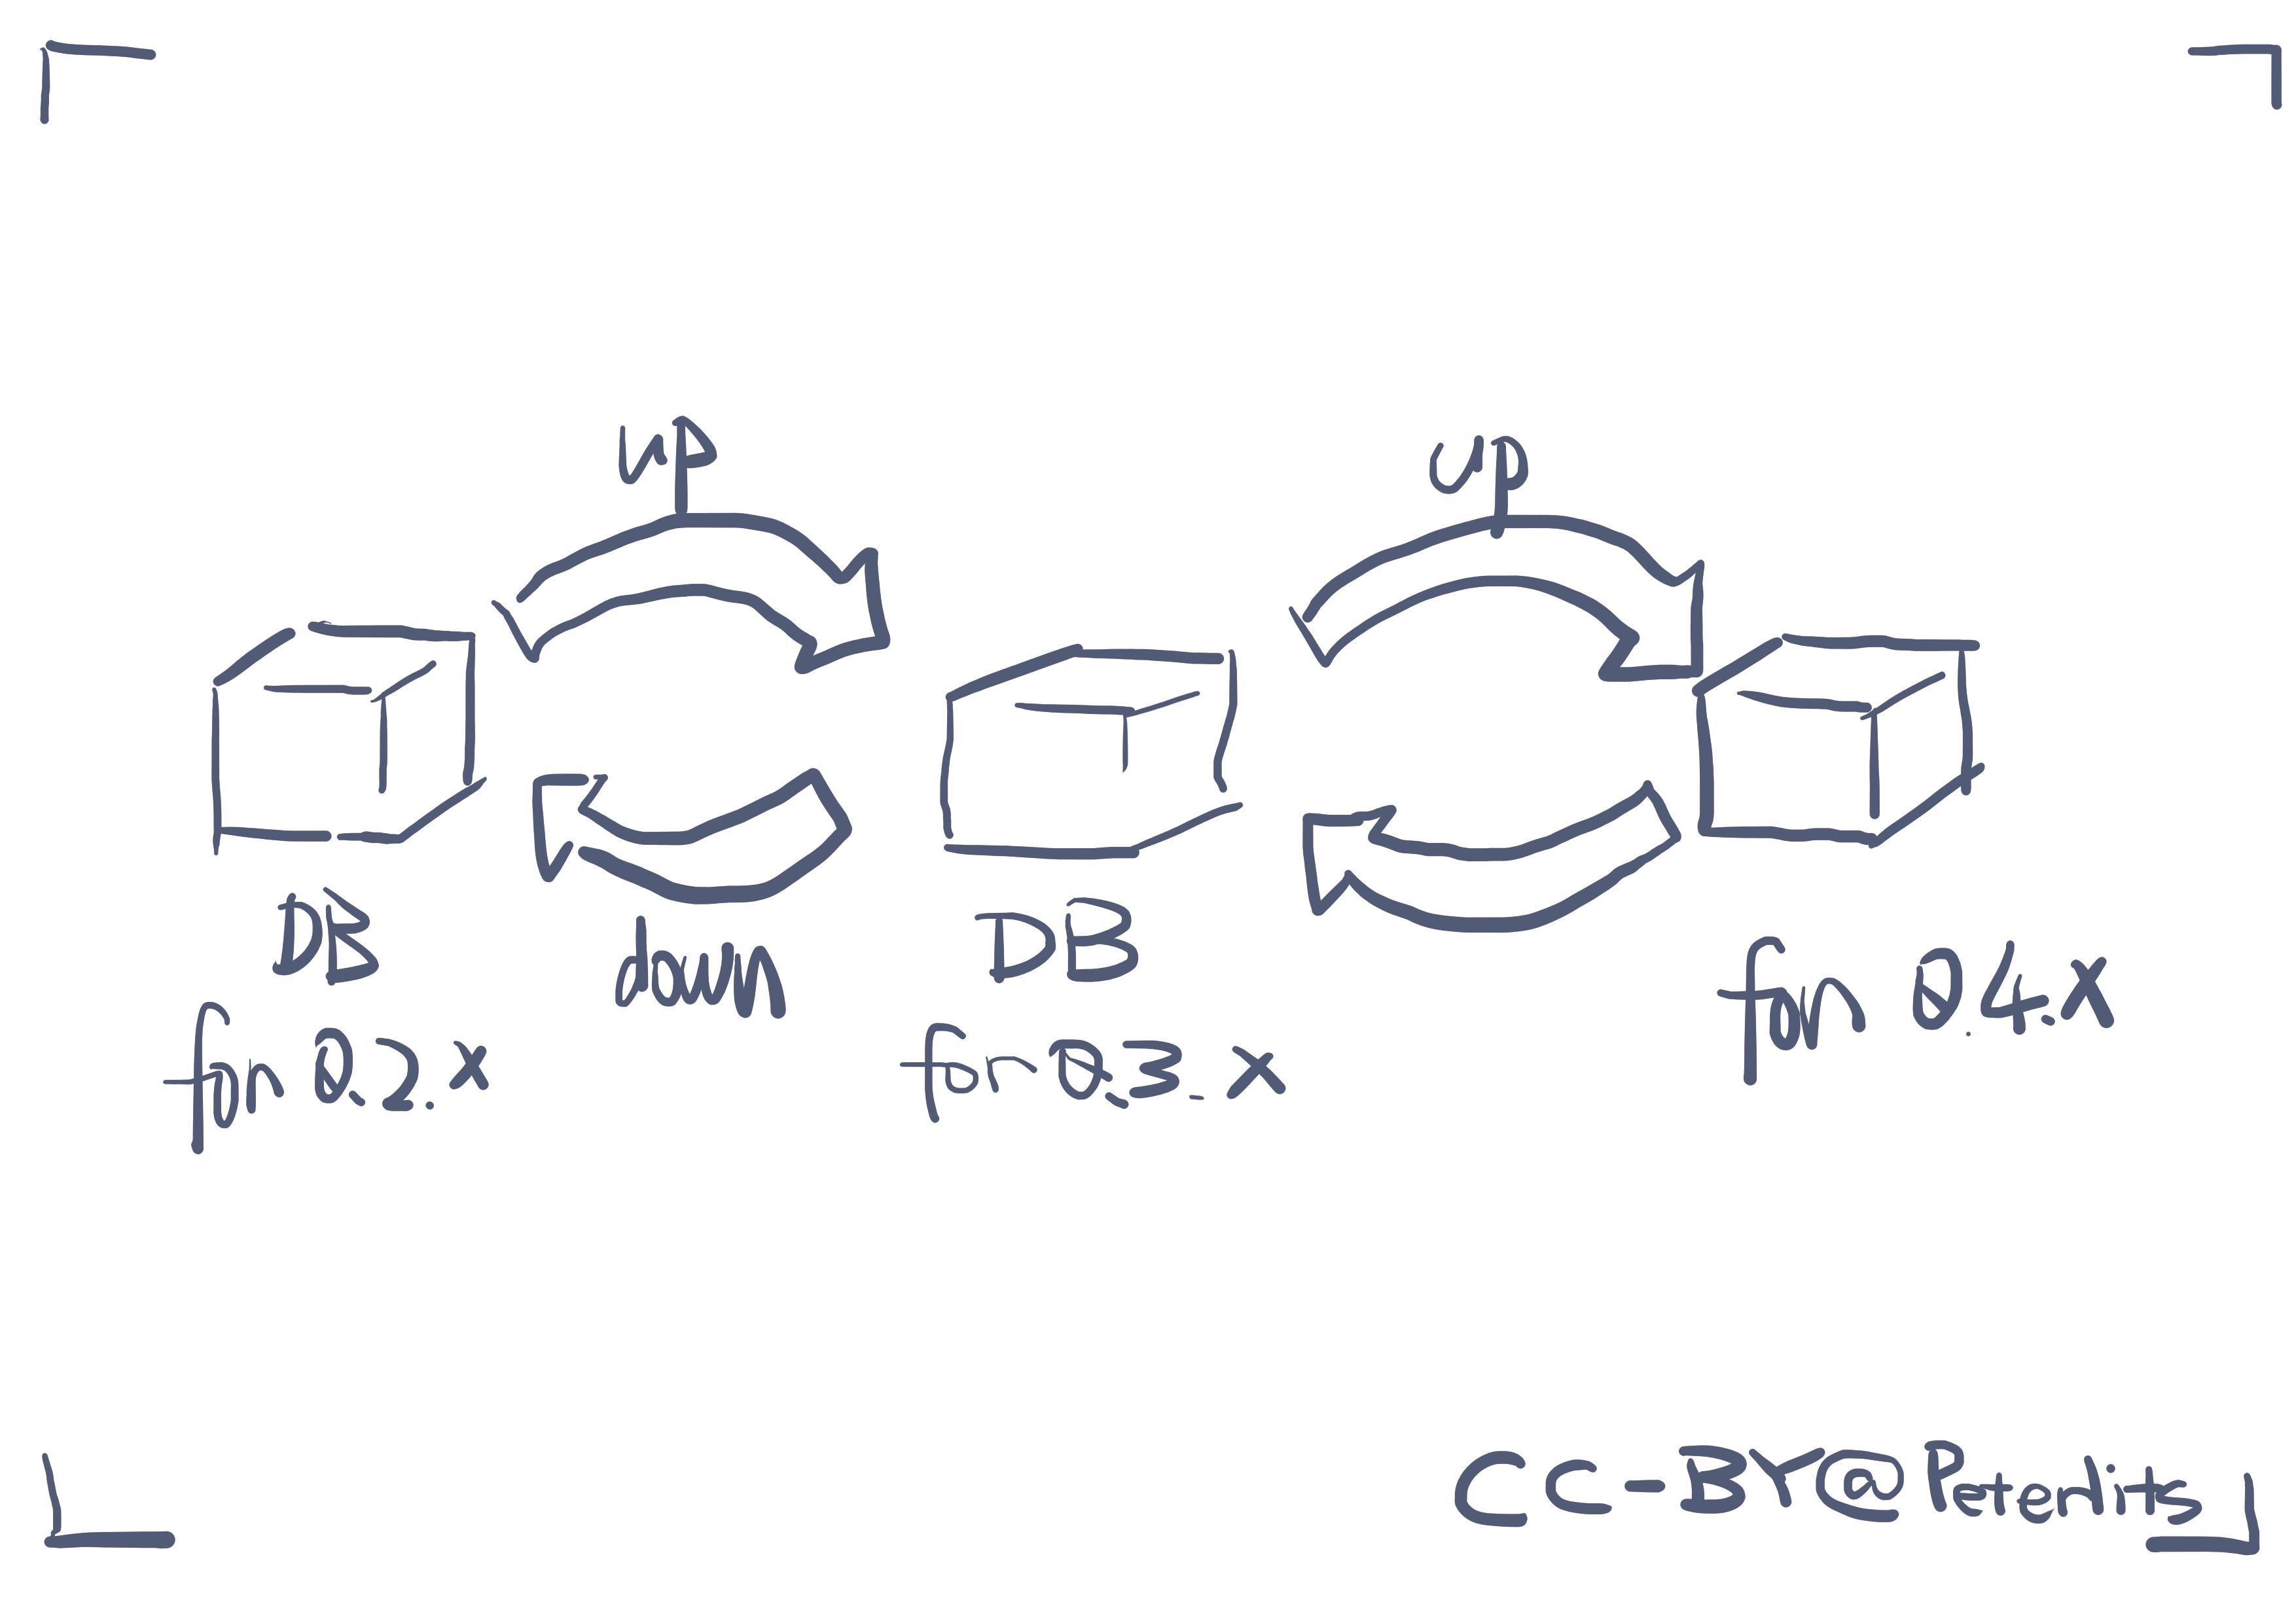 up
up
DB
for 0.2.x
down
DB
for 0.3.x
for 0.4.x
CC-BY @Peterlits